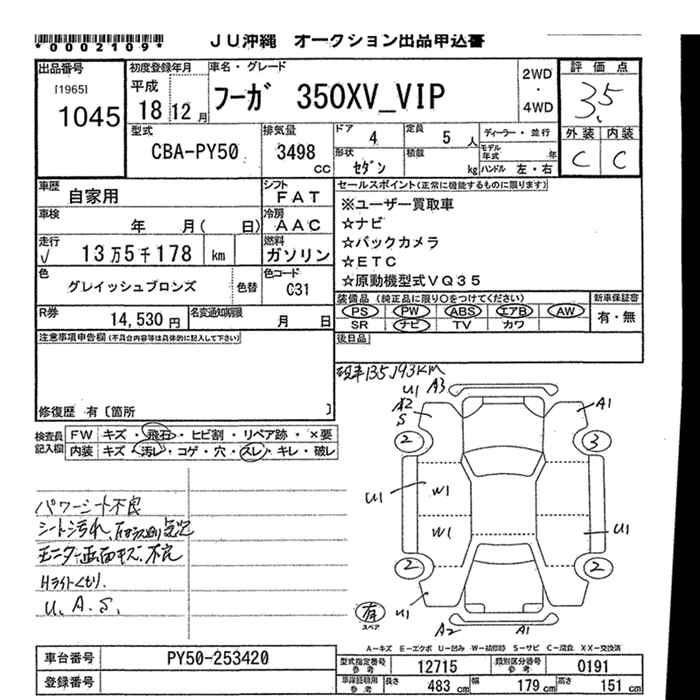 *0002109*
JU沖縄 オークション出品申込書
出品番号
[1965]
1045
初度登録年月
平成
18 12 月
車名・グレード
フーガ 350XV_VIP
2WD
・
4WD
評価点
3.5
外装 内装
C C
型式
CBA-PY50
排気量
3498 cc
ドア 4
定員 5 人
ディーラー・並行
形状 セダン
積載 kg
モデル年式 年
ハンドル 左・右
車歴 自家用
シフト FAT
車検 年 月( 日)
冷房 AAC
走行 √ 13万5千178 km
燃料 ガソリン
色 グレイッシュブロンズ 色替
色コード C31
R券 14,530 円
名変通知期限 月 日
セールスポイント(正常に機能するものに限ります)
※ユーザー買取車
☆ナビ
☆バックカメラ
☆ETC
☆原動機型式VQ35
装備品 (純正品に限り○をつけてください)
PS PW ABS エアB AW
SR ナビ TV カワ
新車保証書
有・無
後日品
注意事項申告欄(不具合内容等は具体的に記入して下さい)
修復歴 有〔箇所 〕
現車135,193KM
検査員記入欄
FW キズ・飛石・ヒビ割・リペア跡・×要
内装 キズ・汚レ・コゲ・穴・スレ・キレ・破レ
パワーシート不良
シート汚れ、
モニター画面キズ、不良
Hライトくもり.
U. A. S.
U1 A3
A2
S
A1
2
3
U1
W1
W1
U1
2
2
U1
有
スペア
A2 A1
A-キズ E-エクボ U-凹み W-補修跡 S-サビ C-腐食 XX-交換済
車台番号 PY50-253420
登録番号
型式指定番号 参考 12715
類別区分番号 参考 0191
車庫証明用 参考 長さ 483 cm 幅 179 cm 高さ 151 cm